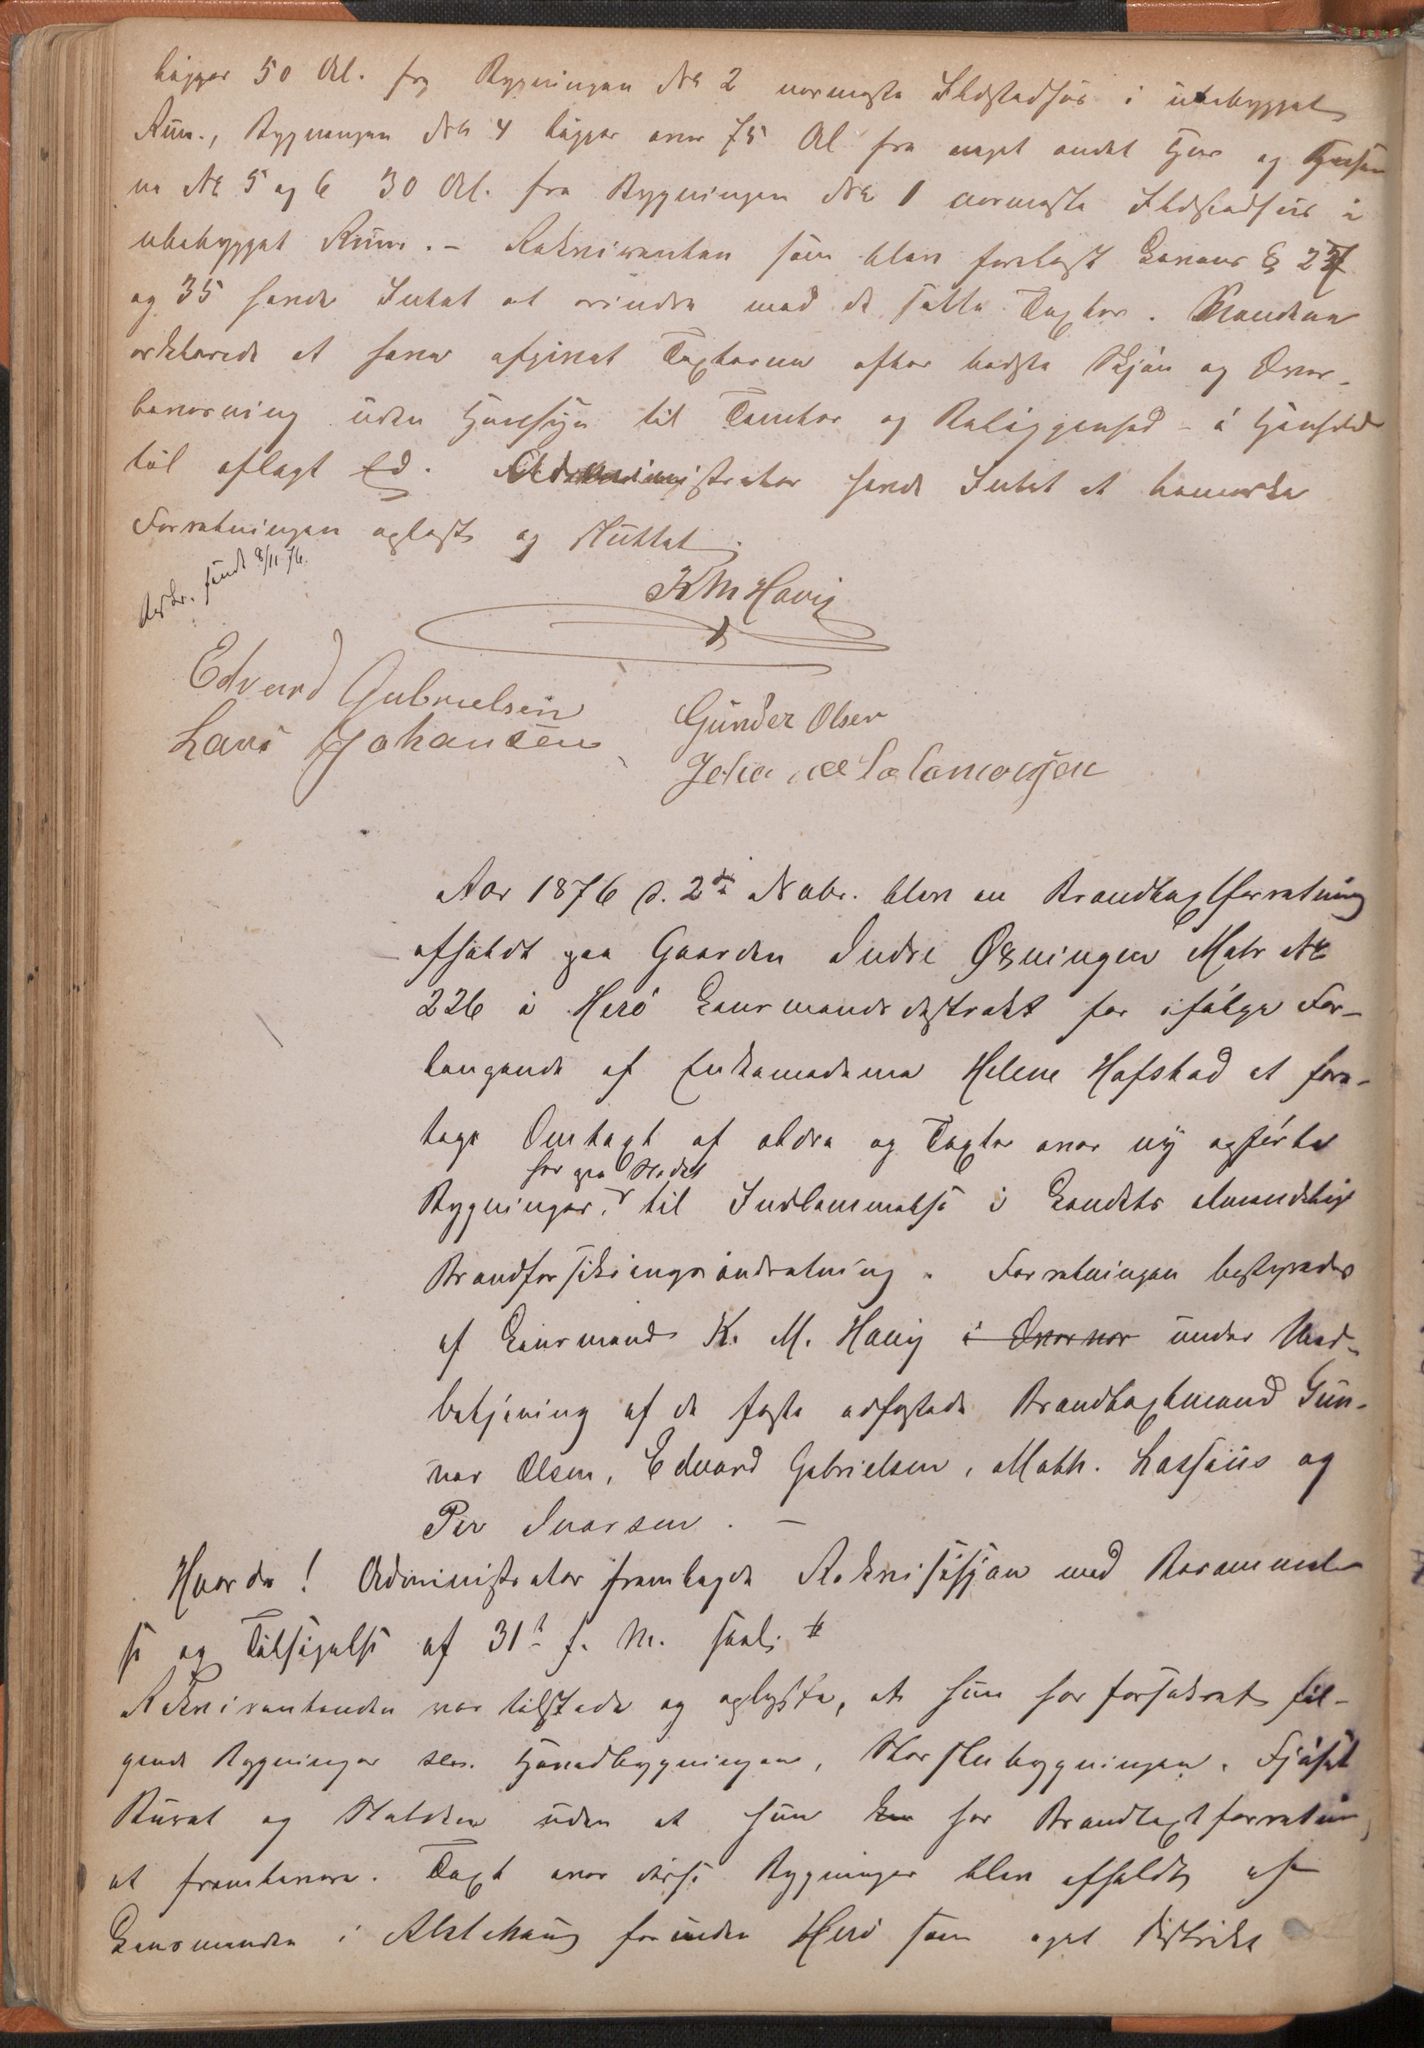 ligger 50 Al. fra Bygningen No 2 nærmeste Ildstedhus i ubebygget
Rum., Bygningen No 4 ligger over 75 Al fra noget andet Hus og Husene
No 5 og 6 30 Al. fra Bygningen No 1 nærmeste Ildstedhus i
ubebygget Rum. – Rekvirenten som blev forelæst Lovens § 27
og 35 havde Intet at erindre mod de satte Taxter. Mændene
erklærede at have afgivet Taxterne efter bedste Skjøn og Over-
bevisning uden Hensyn til Tomter og Beliggenhed – i Henhold
til aflagt Ed. Administrator havde Intet at bemærke
Forretningen oplæst og sluttet.
Beskr. sendt 8/11 76.
K M Havig
Edvard Gabrielsen
Gunder Olsen
Lars Johansen
Aar 1876 d. 2de Novbr. blev en Brandtaxtforretning
afholdt paa Gaarden Indre Øxningen Matr No
226 i Herö Lensmandsdistrikt for ifölge For-
langende af Enkemadame Helene Hofstad at fore-
tage Omtaxt af ældre og Taxter over ny opförte
her paa Stedet
Bygninger, til Indlemmelse i Landets almindelige
Brandforsikringsindretning. Forretningen bestyredes
af Lensmand K. M. Havig i Overvær under Med-
betjening af de faste edfæstede Brandtaxtmænd Gun-
nar Olsen, Edvard Gabrielsen, Math. Lassesius og
Per Ivarsen. –
Hvorda! Administrator fremlagde Rekvisisjon med Berammel-
se og Tilsigelse af 31te f. M. saal: #
Rekvirentinden var tilstede og oplyste, at hun har forsikret föl-
gende Bygninger nem. Hovedbygningen, Storstubygningen, Fjöset
Buret og Stolden uden at hun har Brandtaxtforretning
at fremlevere. Taxt over disse Bygninger blev afholdt af
Lensmanden i Alstahaug forinden Herö som eget Distrikt